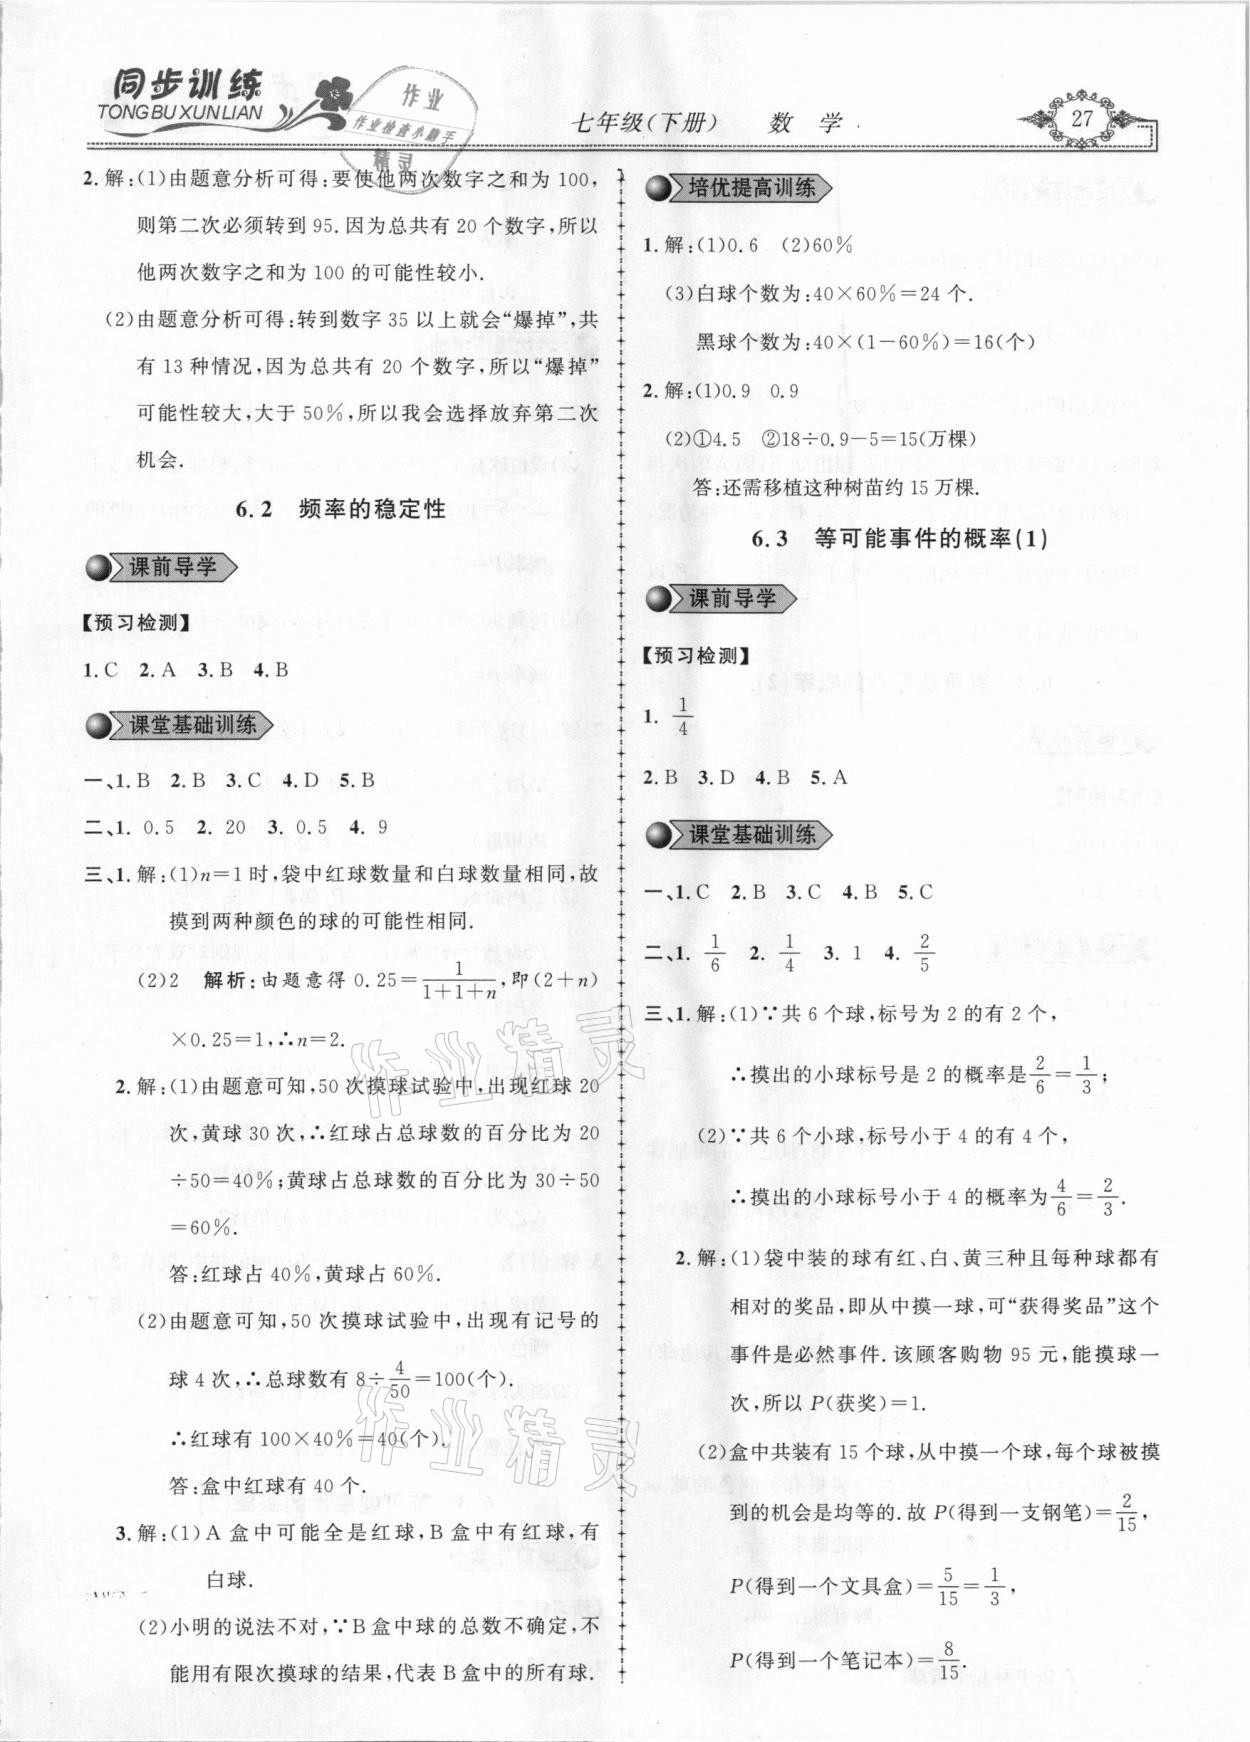 同步训练
TONGBUXUNLIAN
作业
作业检查小助手
精灵
七年级(下册) 数 学
27
2.解:(1)由题意分析可得:要使他两次数字之和为100,
则第二次必须转到95.因为总共有20个数字,所以
他两次数字之和为100的可能性较小.
(2)由题意分析可得:转到数字35以上就会“爆掉”,共
有13种情况,因为总共有20个数字,所以“爆掉”
可能性较大,大于50%,所以我会选择放弃第二次
机会.
6.2 频率的稳定性
课前导学
【预习检测】
1.C 2.A 3.B 4.B
课堂基础训练
一、1.B 2.B 3.C 4.D 5.B
二、1.0.5 2.20 3.0.5 4.9
三、1.解:(1)n=1时,袋中红球数量和白球数量相同,故
摸到两种颜色的球的可能性相同.
(2)2 解析:由题意得0.25=1/(1+1+n),即(2+n)
×0.25=1,∴n=2.
2.解:(1)由题意可知,50次摸球试验中,出现红球20
次,黄球30次,∴红球占总球数的百分比为20
÷50=40%;黄球占总球数的百分比为30÷50
=60%.
答:红球占40%,黄球占60%.
(2)由题意可知,50次摸球试验中,出现有记号的
球4次,∴总球数有8÷4/50=100(个).
∴红球有100×40%=40(个).
答:盒中红球有40个.
3.解:(1)A盒中可能全是红球,B盒中有红球,有
白球.
(2)小明的说法不对,∵B盒中球的总数不确定,不
能用有限次摸球的结果,代表B盒中的所有球.
培优提高训练
1.解:(1)0.6 (2)60%
(3)白球个数为:40×60%=24个.
黑球个数为:40×(1-60%)=16(个)
2.解:(1)0.9 0.9
(2)①4.5 ②18÷0.9-5=15(万棵)
答:还需移植这种树苗约15万棵.
6.3 等可能事件的概率(1)
课前导学
【预习检测】
1. 1/4
2.B 3.D 4.B 5.A
课堂基础训练
一、1.C 2.B 3.C 4.B 5.C
二、1. 1/6 2. 1/4 3.1 4. 2/5
三、1.解:(1)∵共6个球,标号为2的有2个,
∴摸出的小球标号是2的概率是2/6=1/3;
(2)∵共6个小球,标号小于4的有4个,
∴摸出的小球标号小于4的概率为4/6=2/3.
2.解:(1)袋中装的球有红、白、黄三种且每种球都有
相对的奖品,即从中摸一球,可“获得奖品”这个
事件是必然事件.该顾客购物95元,能摸球一
次,所以P(获奖)=1.
(2)盒中共装有15个球,从中摸一个球,每个球被摸
到的机会是均等的.故P(得到一支钢笔)=2/15,
P(得到一个文具盒)=5/15=1/3,
P(得到一个笔记本)=8/15.
作业精灵
作业精灵